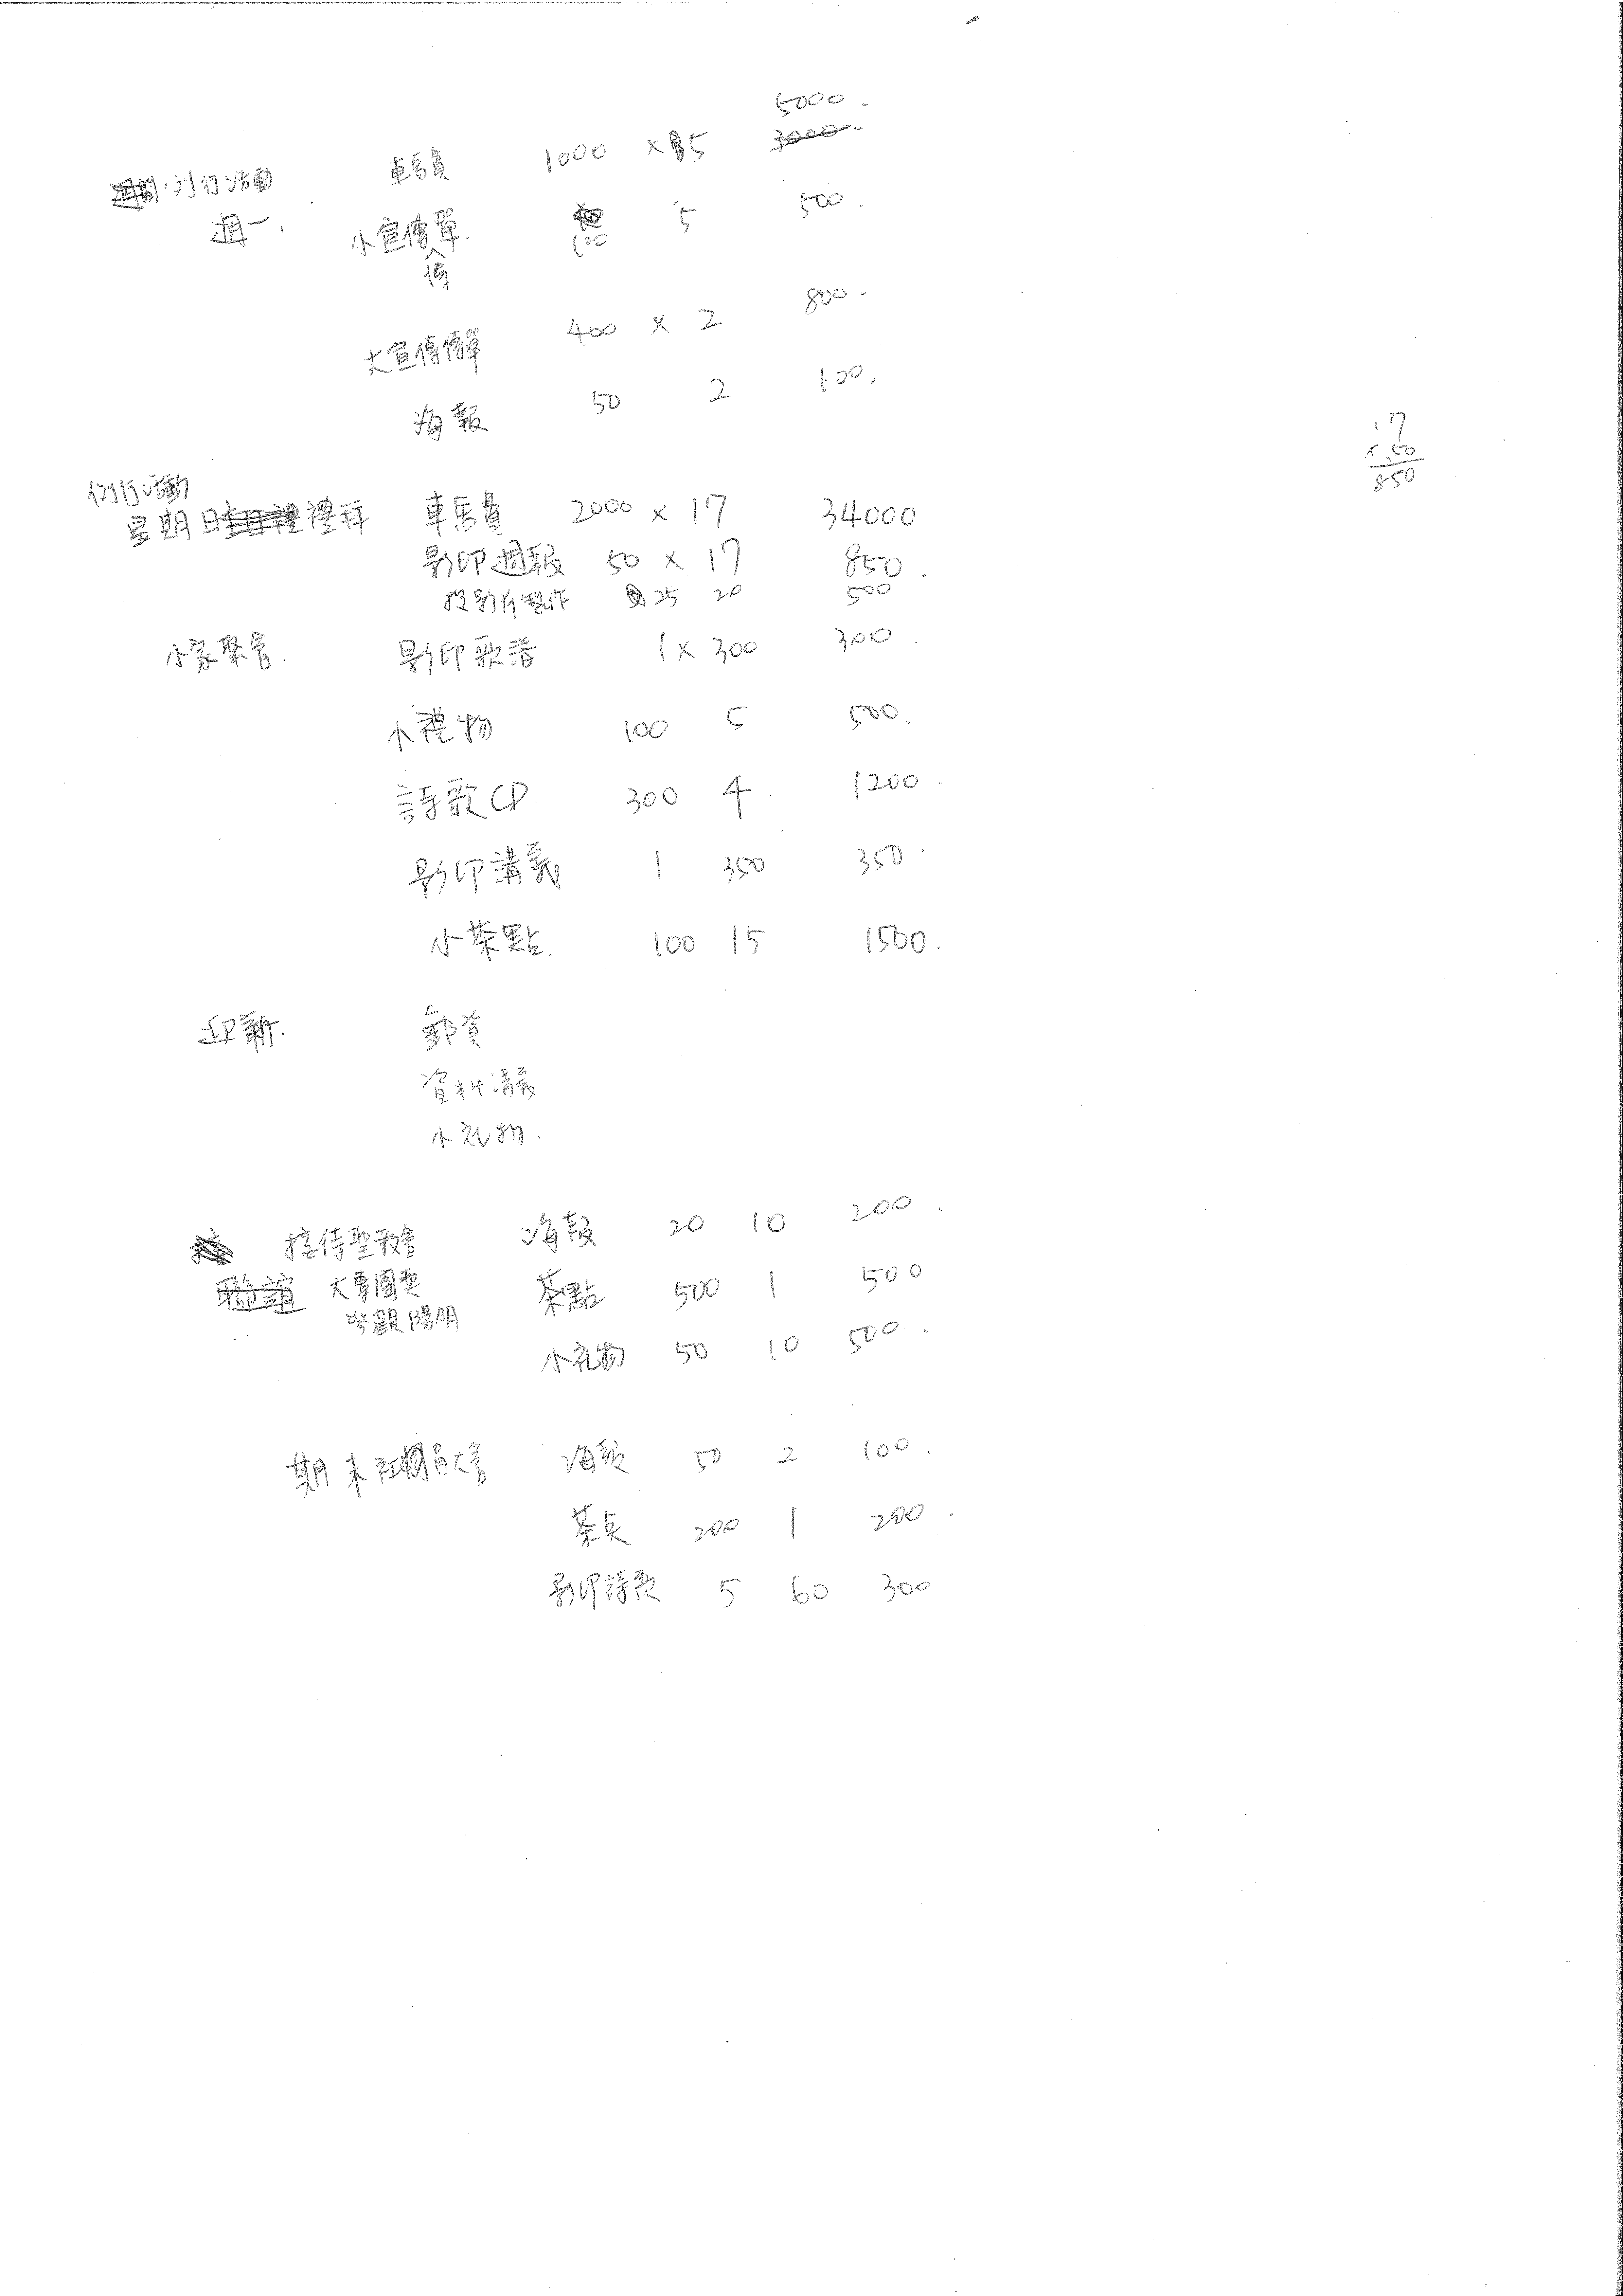 例行活動 車馬費 1000 × 5 5000.
3000.
週一. 小宣傳單. 100 5 500.
傳
大宣傳傳單 400 × 2 800.
海報 50 2 100.
17
× 50
850
例行活動
星期日禮拜 車馬費 2000 × 17 34000
影印週報 50 × 17 850.
投影片製作 25 20 500
小家聚會. 影印歌譜 1 × 300 300.
小禮物 100 5 500.
詩歌CD. 300 4. 1200.
影印講義 1 350 350.
小茶點. 100 15 1500.
迎新. 郵資
資料講義
小礼物.
接待聖歌會 海報 20 10 200.
聯誼 大專團契 茶點 500 1 500
參觀陽明
小礼物 50 10 500.
期末社員大會 海報 50 2 100.
茶点 200 1 200.
影印詩歌 5 60 300